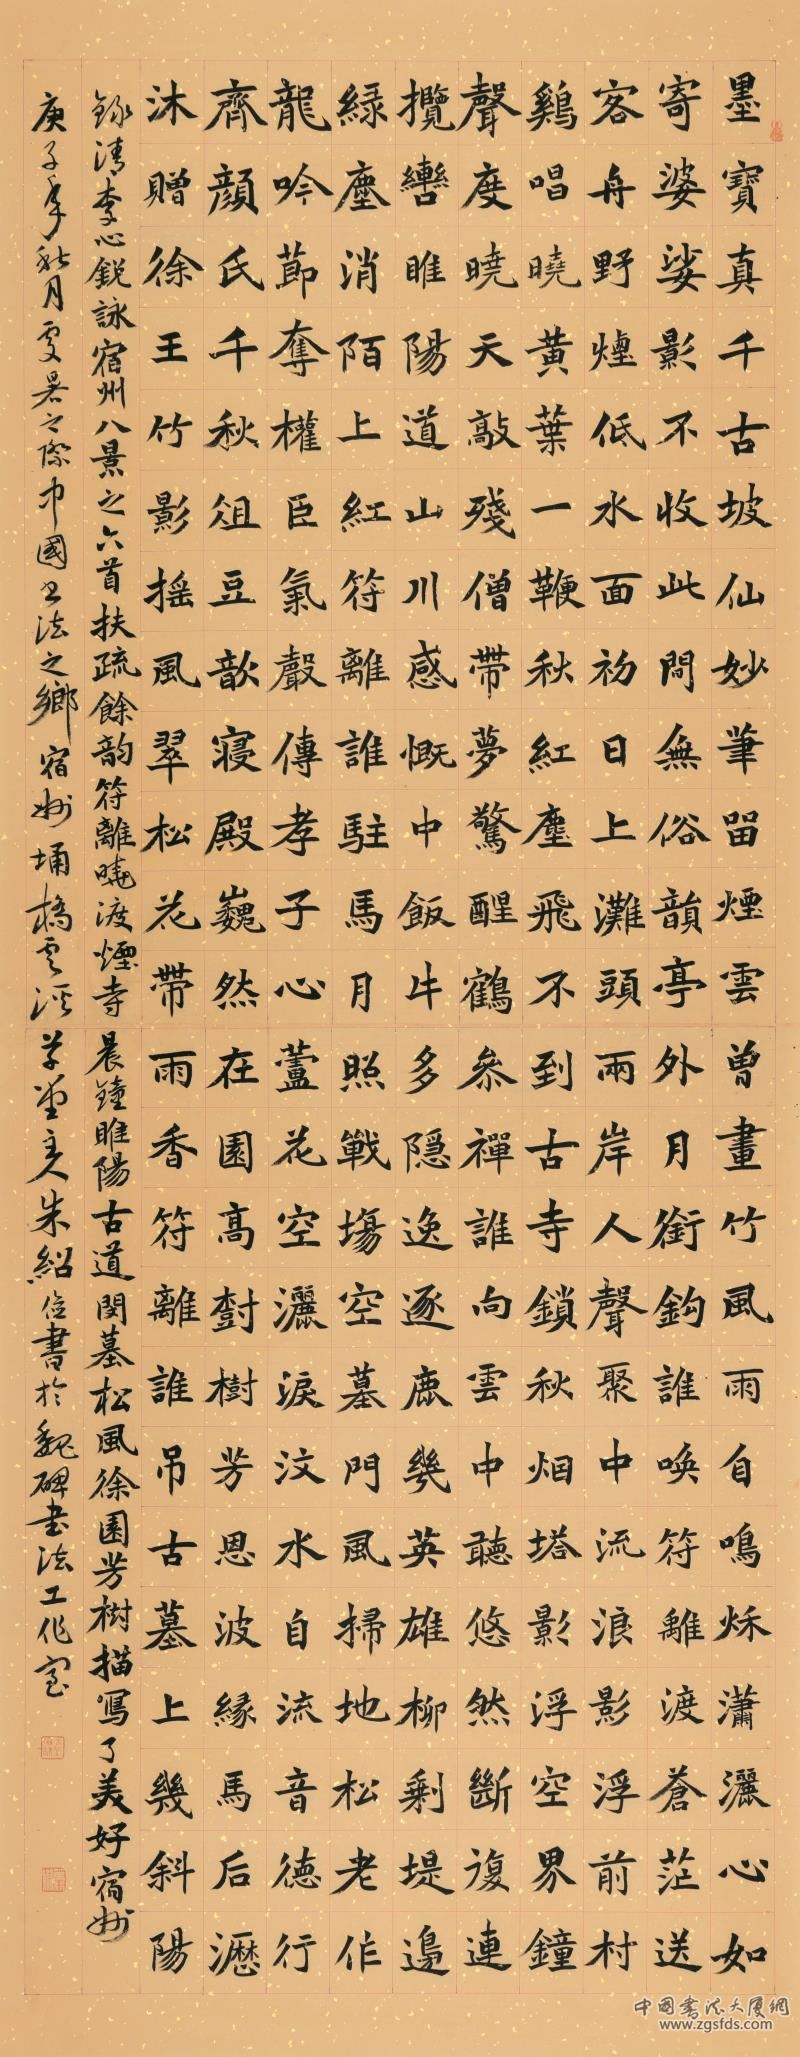 墨寶真千古坡仙妙筆留煙雲曾畫竹風雨自鳴秌瀟灑心如
寄婆娑影不收此間無俗韻亭外月銜鈎誰喚符離渡蒼茫送
客舟野煙低水面初日上灘頭兩岸人聲聚中流浪影浮前村
鷄唱曉黃葉一鞭秋紅塵飛不到古寺鎖秋烟塔影浮空界鐘
聲度曉天敲殘僧帶夢驚醒鶴叅禪誰向雲中聽悠然斷復連
攬轡睢陽道山川感慨中飯牛多隱逸逐鹿幾英雄柳剩堤邊
緑塵消陌上紅符離誰駐馬月照戰塲空墓門風掃地松老作
龍吟節奪權臣氣聲傳孝子心蘆花空灑淚汶水自流音德行
齊顏氏千秋俎豆歆寢殿巍然在園高對樹芳恩波緣馬后瀝
沐贈徐王竹影摇風翠松花帶雨香符離誰吊古墓上幾斜陽
錄清李心銳詠宿州八景之六首扶疏餘韵符離曉渡煙寺晨鐘睢陽古道閔墓松風徐園芳樹描寫了美好宿州
庚子年秋月處暑之際中國书法之鄉宿州埇橋雲溪草堂主人朱紹位書於魏碑书法工作室
中国书法大厦網
www.zgsfds.com